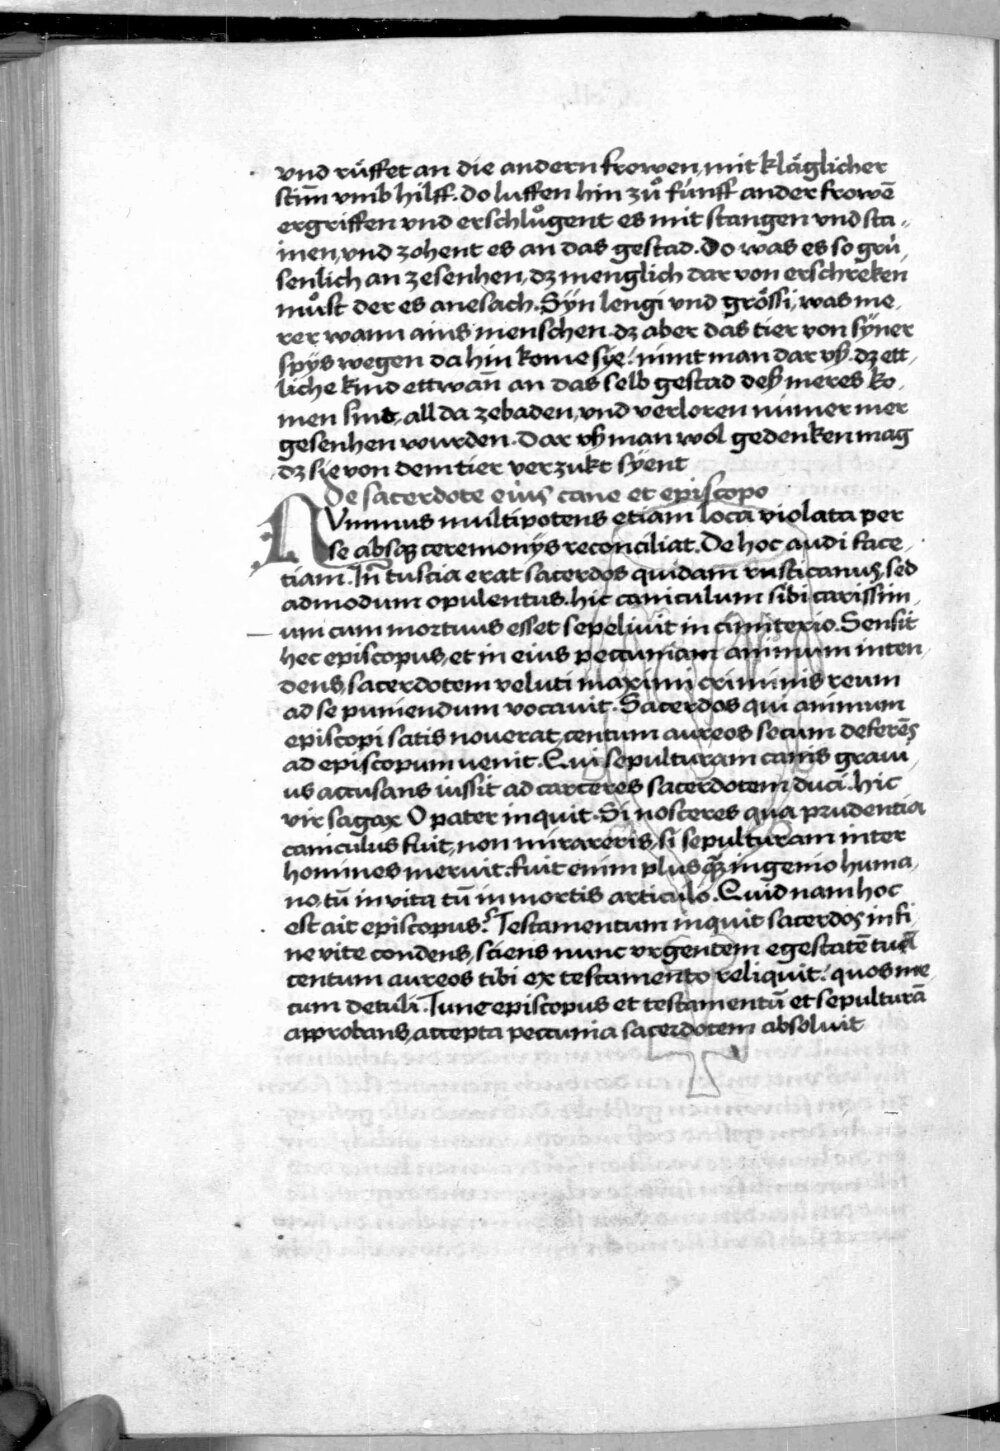 vnd rüffet an die andern frowen, mit kläglicher
stim̄ vmb hilff. do luffen hin zů fünff ander frowē
ergriffen vnd erschlůgent es mit stangen vnd sta-
inen, vnd zohent es an das gestad. Do was es so grü-
senlich an zesenhen, dz menglich dar von erschreken
můst der es anesach. Syn lengi vnd grössi, was me-
rer wann ains menschen. dz aber das tier von syner
spys wegen da hin kome sye: nimt man dar vß. dz ett-
liche kind ettwañ an das selb gestad deß meres ko-
men sind, all da zebaden, vnd verloren nimer mer
gesenhen wurden. Dar vß man wol gedenken mag
dz sie von dem tier verzukt syent
De sacerdote eius cane et episcopo
Nummus multipotens etiam loca violata per
se absqȝ ceremonys reconciliat. De hoc audi face-
tiam. In tuscia erat sacerdos quidam rusticanus, sed
admodum opulentus. hic caniculum sibi carissim-
um cum mortuus esset sepelivit in cimiterio. Sensit
hec episcopus, et in eius pecuniam animum inten-
dens, sacerdotem veluti maximi criminis reum
ad se puniendum vocavit. Sacerdos qui animum
episcopi satis noverat, centum aureos secum deferēs
ad episcopum venit. Qui sepulturam canis gravi-
us accusans iussit ad carceres sacerdotem duci. hic
vir sagax O pater inquit. Si nosceres qua prudentia
caniculus fuit, non mirareris, si sepulturam inter
homines meruit. fuit enim plus qȝ ingenio huma-
no, tū in vita tū in mortis articulo. Quid nam hoc
est ait episcopus? Testamentum inquit sacerdos in fi
ne vite condens, sciens nunc vrgentem egestatē tuā
centum aureos tibi ex testamento reliquit: quos me
cum detuli. Tunc episcopus et testamentū et sepulturā
approbans, accepta pecunia sacerdotem absoluit